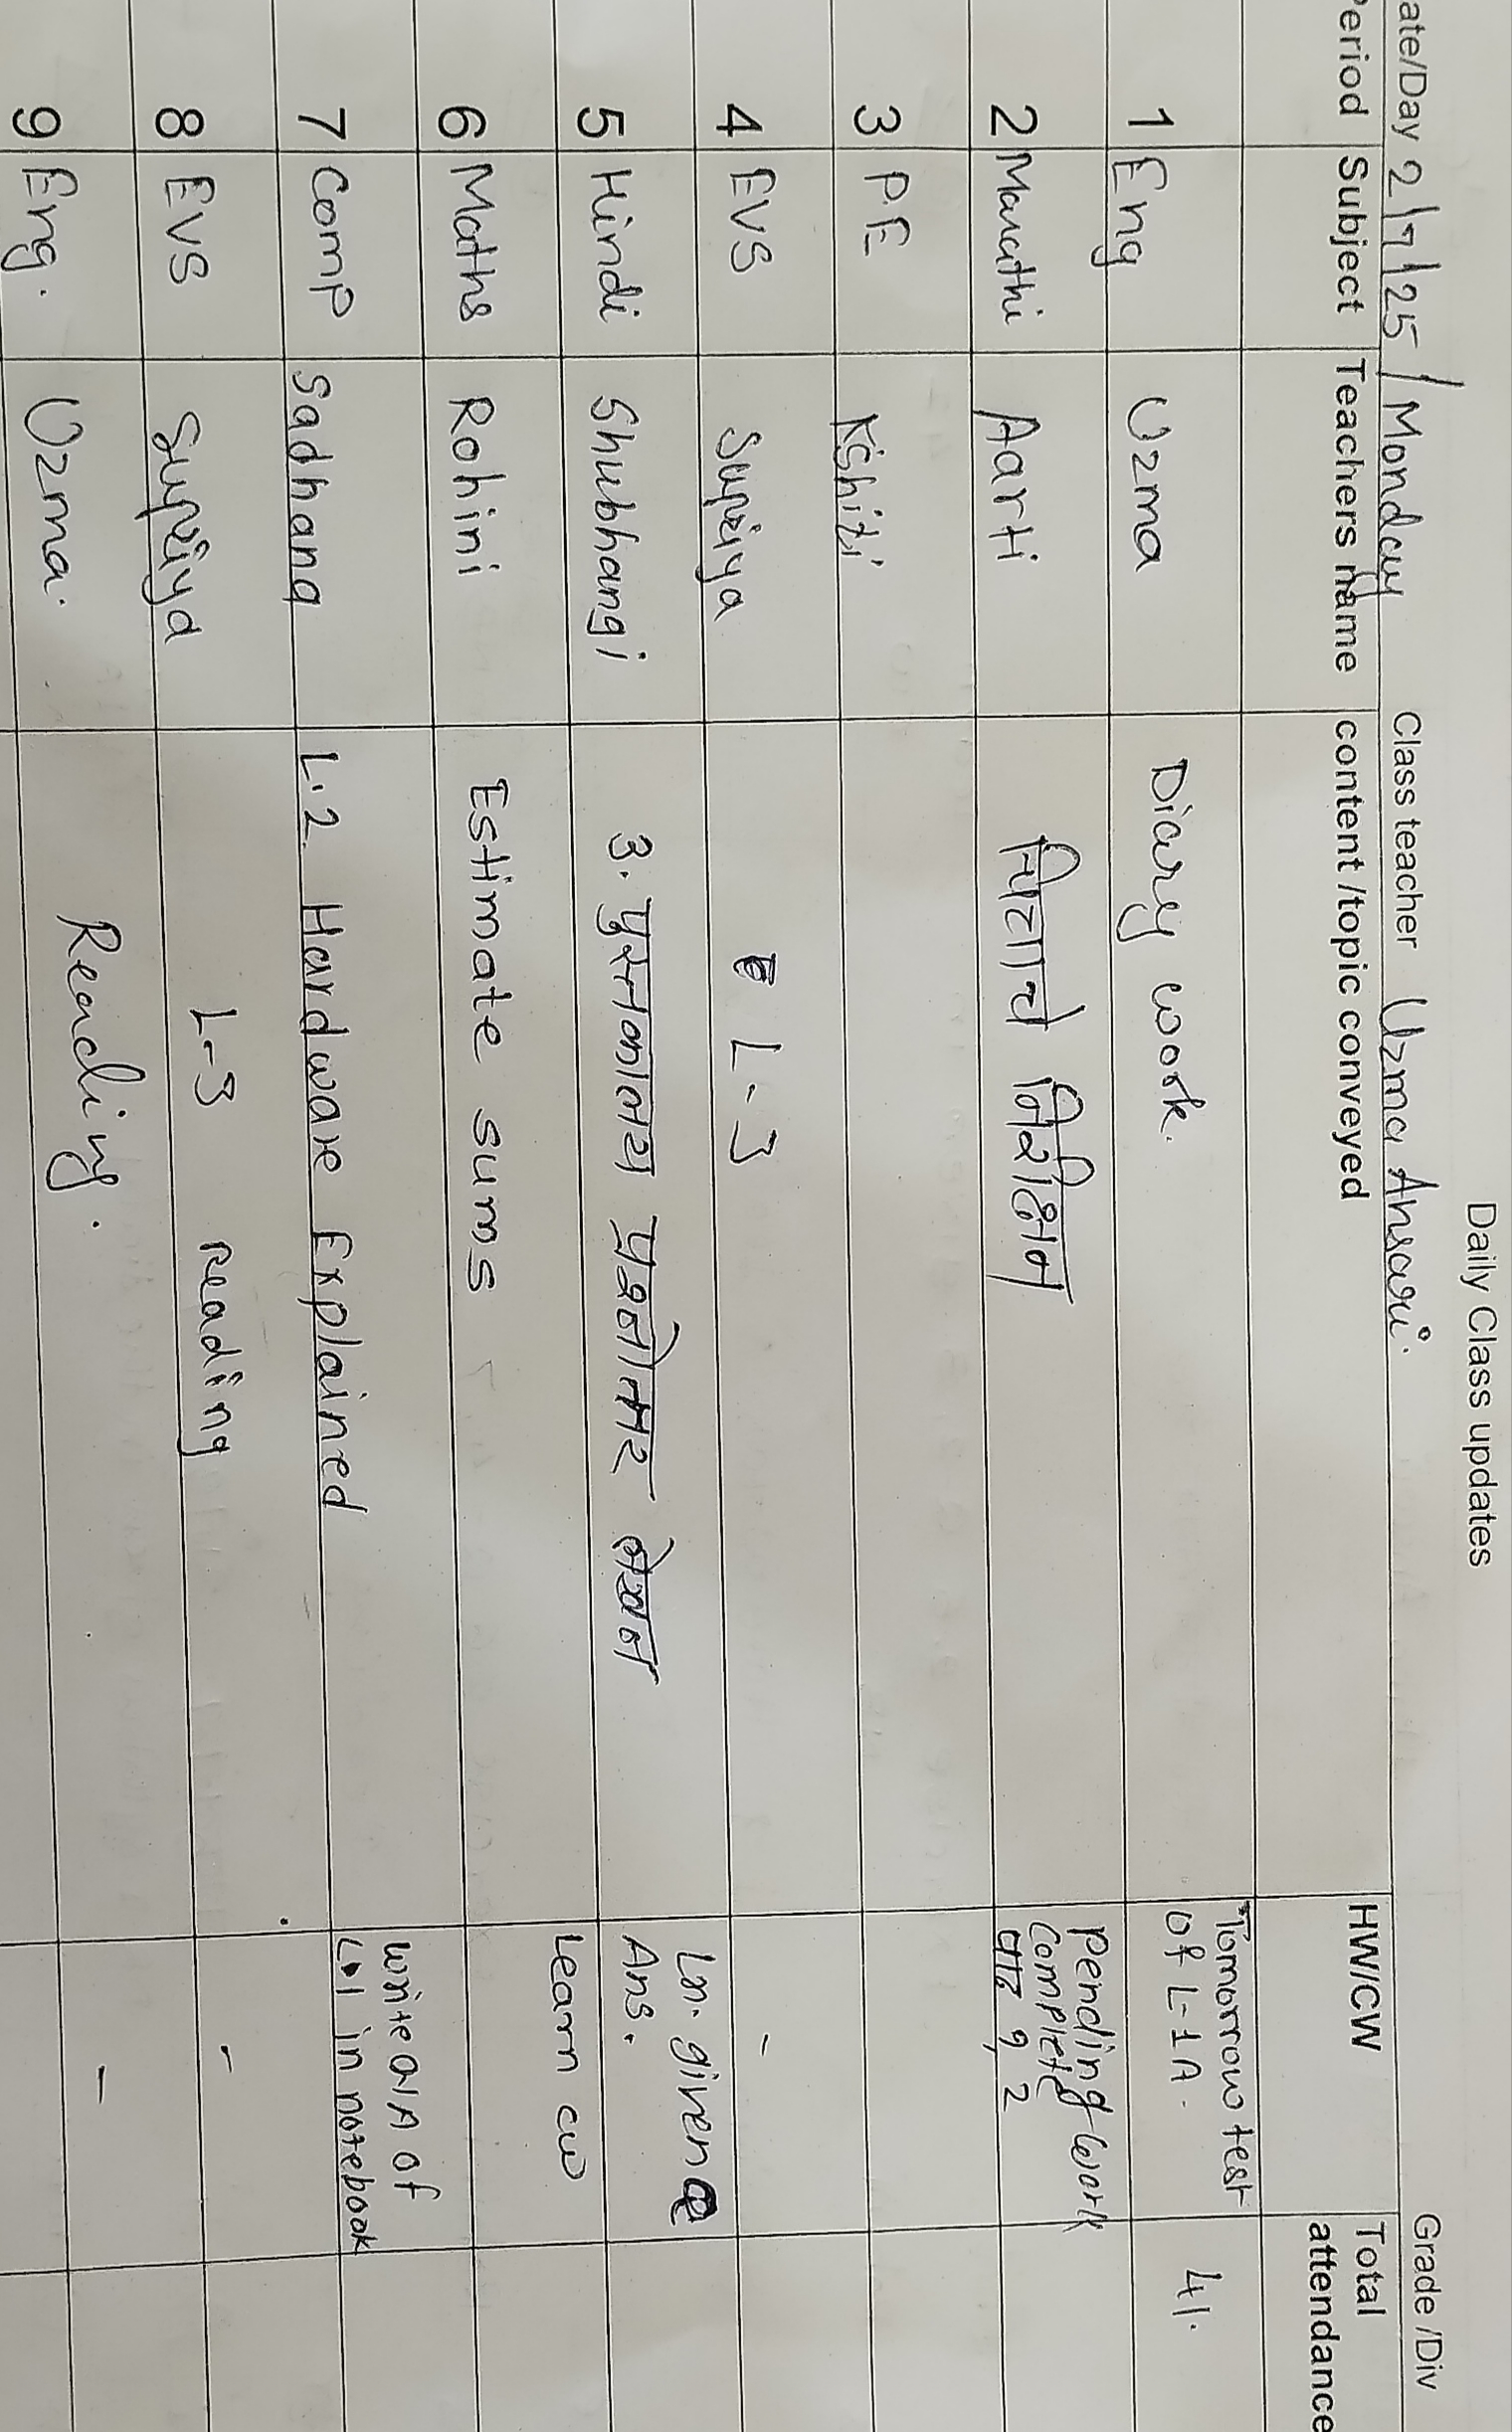 Daily Class updates
ate/Day 2/7/25 / Monday Class teacher Uzma Ansari. Grade /Div
Period Subject Teachers name content /topic conveyed HW/CW Total attendance
1 Eng Uzma Diary work. Tomorrow test of L-1A. 41.
2 Marathi Aarti चित्राचे निरीक्षण Pending work complete पाठ १, २
3 P.E Kshiti
4 EVS Supriya L-3 -
5 Hindi Shubhangi 3. पुस्तकालय प्रश्नोत्तर लेखन Ln. given Ans.
6 Maths Rohini Estimate sums Learn cw
7 Comp Sadhana L.2 Hardware Explained write Q/A of L.1 in notebook
8 EVS Supriya L-3 reading -
9 Eng. Uzma. Reading. -